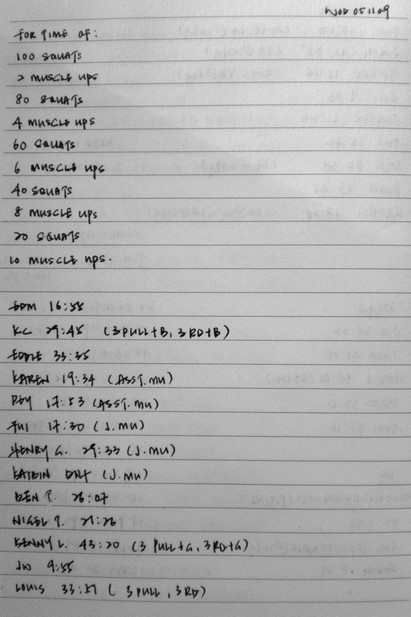 WOD 051109
FOR TIME OF:
100 SQUATS
2 MUSCLE UPS
80 SQUATS
4 MUSCLE UPS
60 SQUATS
6 MUSCLE UPS
40 SQUATS
8 MUSCLE UPS
20 SQUATS
10 MUSCLE UPS.
16:55
KC 29:45 (3PULL+B, 3RD+B)
EDDIE 33:35
KAREN 19:34 (ASST. MU)
ROY 17:53 (ASST. MU)
17:30 (J. MU)
HENRY G. 29:33 (J. MU)
DNF (J. MU)
BEN T. 26:07
NIGEL T. 21:26
KENNY L. 43:20 (3 PULL+G, 3RD+G)
JW 9:55
LOUIS 33:57 (3 PULL, 3RD)